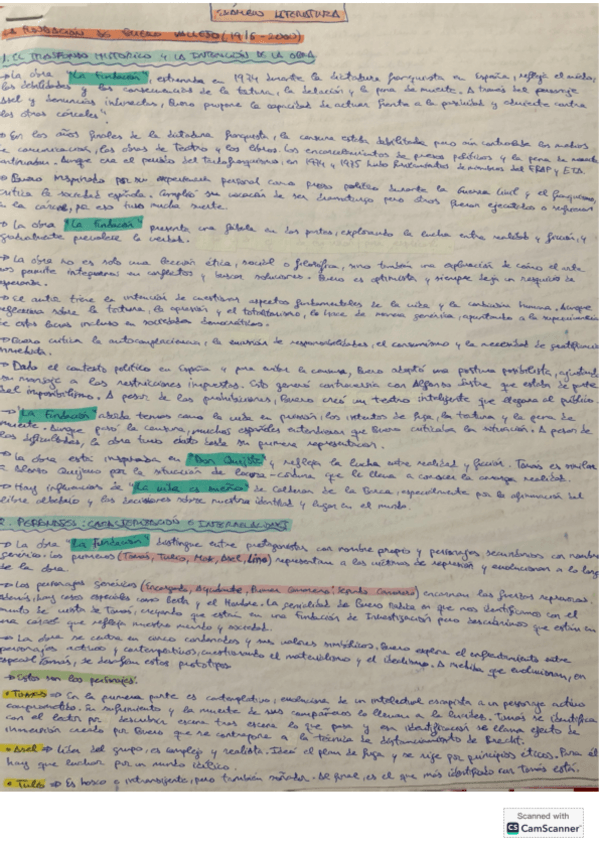 EXAMEN LITERATURA
LA FUNDACIÓN DE BUERO VALLEJO (1916-2000)
1. EL TRASFONDO HISTÓRICO Y LA INTENCIÓN DE LA OBRA
→ La obra "La Fundación", estrenada en 1974 durante la dictadura franquista en España, refleja el miedo,
las debilidades y las consecuencias de la tortura, la delación y la pena de muerte. A través del personaje
Asel y denuncias indirectas, Buero propone la capacidad de actuar frente a la pasividad y
las otras cárceles".
→ En los años finales de la dictadura franquista, la censura estaba debilitada pero aún controlaba los medios
de comunicación, las obras de teatro y los libros. Los encarcelamientos de presos políticos y la pena de muerte
continuaban. Aunque era el periodo del tardofranquismo, en 1974 y 1975 hubo fusilamientos de miembros del FRAP y ETA.
→ Buero inspirado por su experiencia personal como preso político durante la Guerra Civil y el franquismo,
critica la sociedad española. Cumplió su vocación de ser dramaturgo pero otros fueron ejecutados o
en la cárcel, por eso tuvo mucha suerte.
→ La obra "La Fundación" presenta una fábula en dos partes, explorando la lucha entre realidad y ficción, y
gradualmente prevalece la verdad.
→ La obra no es solo una lección ética, social o filosófica, sino también una exploración de cómo el arte
nos permite integrarnos en conflictos y buscar soluciones. Buero es optimista y siempre deja un resquicio de
esperanza.
→ El autor tiene la intención de cuestionar aspectos fundamentales de la vida y la condición humana. Aunque
reflexiona sobre la tortura, la opresión y el totalitarismo, lo hace de manera genérica, apuntando a la supervivencia
de estas lacras incluso en sociedades democráticas.
→ Buero critica la autocomplacencia, la evasión de responsabilidades, el consumismo y la necesidad de gratificación
inmediata.
→ Dado el contexto político en España y para evitar la censura, Buero adoptó una postura posibilista, ajustando
su mensaje a las restricciones impuestas. Esto generó controversia con Alfonso Sastre que estaba de parte
del imposibilismo. A pesar de las prohibiciones, Buero creó un teatro inteligente que llegara al público.
→ "La Fundación" aborda temas como la vida en prisión, los intentos de fuga, la tortura y la pena de
muerte. Aunque pasó la censura, muchos españoles entendieron que Buero criticaba la situación. A pesar de
las dificultades, la obra tuvo éxito desde su primera representación.
→ La obra está inspirada en "Don Quijote" y refleja la lucha entre realidad y ficción. Tomás es similar
a Alonso Quijano por la situación de locura-cordura que le lleva a conocer la amarga realidad.
→ Hay influencias de "La vida es sueño" de Calderón de la Barca, especialmente por la afirmación del
libre albedrío y las decisiones sobre nuestra identidad y lugar en el mundo.
2. PERSONAJES: CARACTERIZACIÓN E INTERRELACIONES
→ La obra "La Fundación" distingue entre protagonistas con nombre propio y personajes secundarios con nombre
genérico. Los primeros (Tomás, Tulio, Max, Asel, Lino) representan a las víctimas de represión y evolucionan a lo largo
de la obra.
→ Los personajes genéricos (Encargado, Ayudante, Primer Camarero, Segundo Camarero) encarnan las fuerzas represivas.
Además, hay casos especiales como Berta y el Hombre. La genialidad de Buero radica en que nos identificamos con el
punto de vista de Tomás, creyendo que están en una Fundación de Investigación pero descubrimos que están en
una cárcel que refleja nuestro mundo y sociedad.
→ La obra se centra en cinco condenados y sus valores simbólicos. Buero explora el enfrentamiento entre
personajes activos y contemplativos, cuestionando el materialismo y el idealismo. A medida que evolucionan, en
especial Tomás, se desafían estos prototipos.
→ Estos son los personajes:
• TOMÁS ⇒ En la primera parte es contemplativo, evoluciona de un intelectual escapista a un personaje activo
comprometido. Su sufrimiento y la muerte de sus compañeros lo llevan a la lucidez. Tomás se identifica
con el lector por descubrir escena tras escena lo que pasa y esa identificación se llama efecto de
inmersión creado por Buero que se contrapone a la técnica de distanciamiento de Brecht.
• Asel ⇒ Líder del grupo, es complejo y realista. Ideó el plan de fuga y se rige por principios éticos. Para él
hay que luchar por un mundo idílico.
• TULIO ⇒ Es tosco e intransigente, pero también soñador. Al final, es el que más identificado con Tomás está.
Scanned with
CS CamScanner